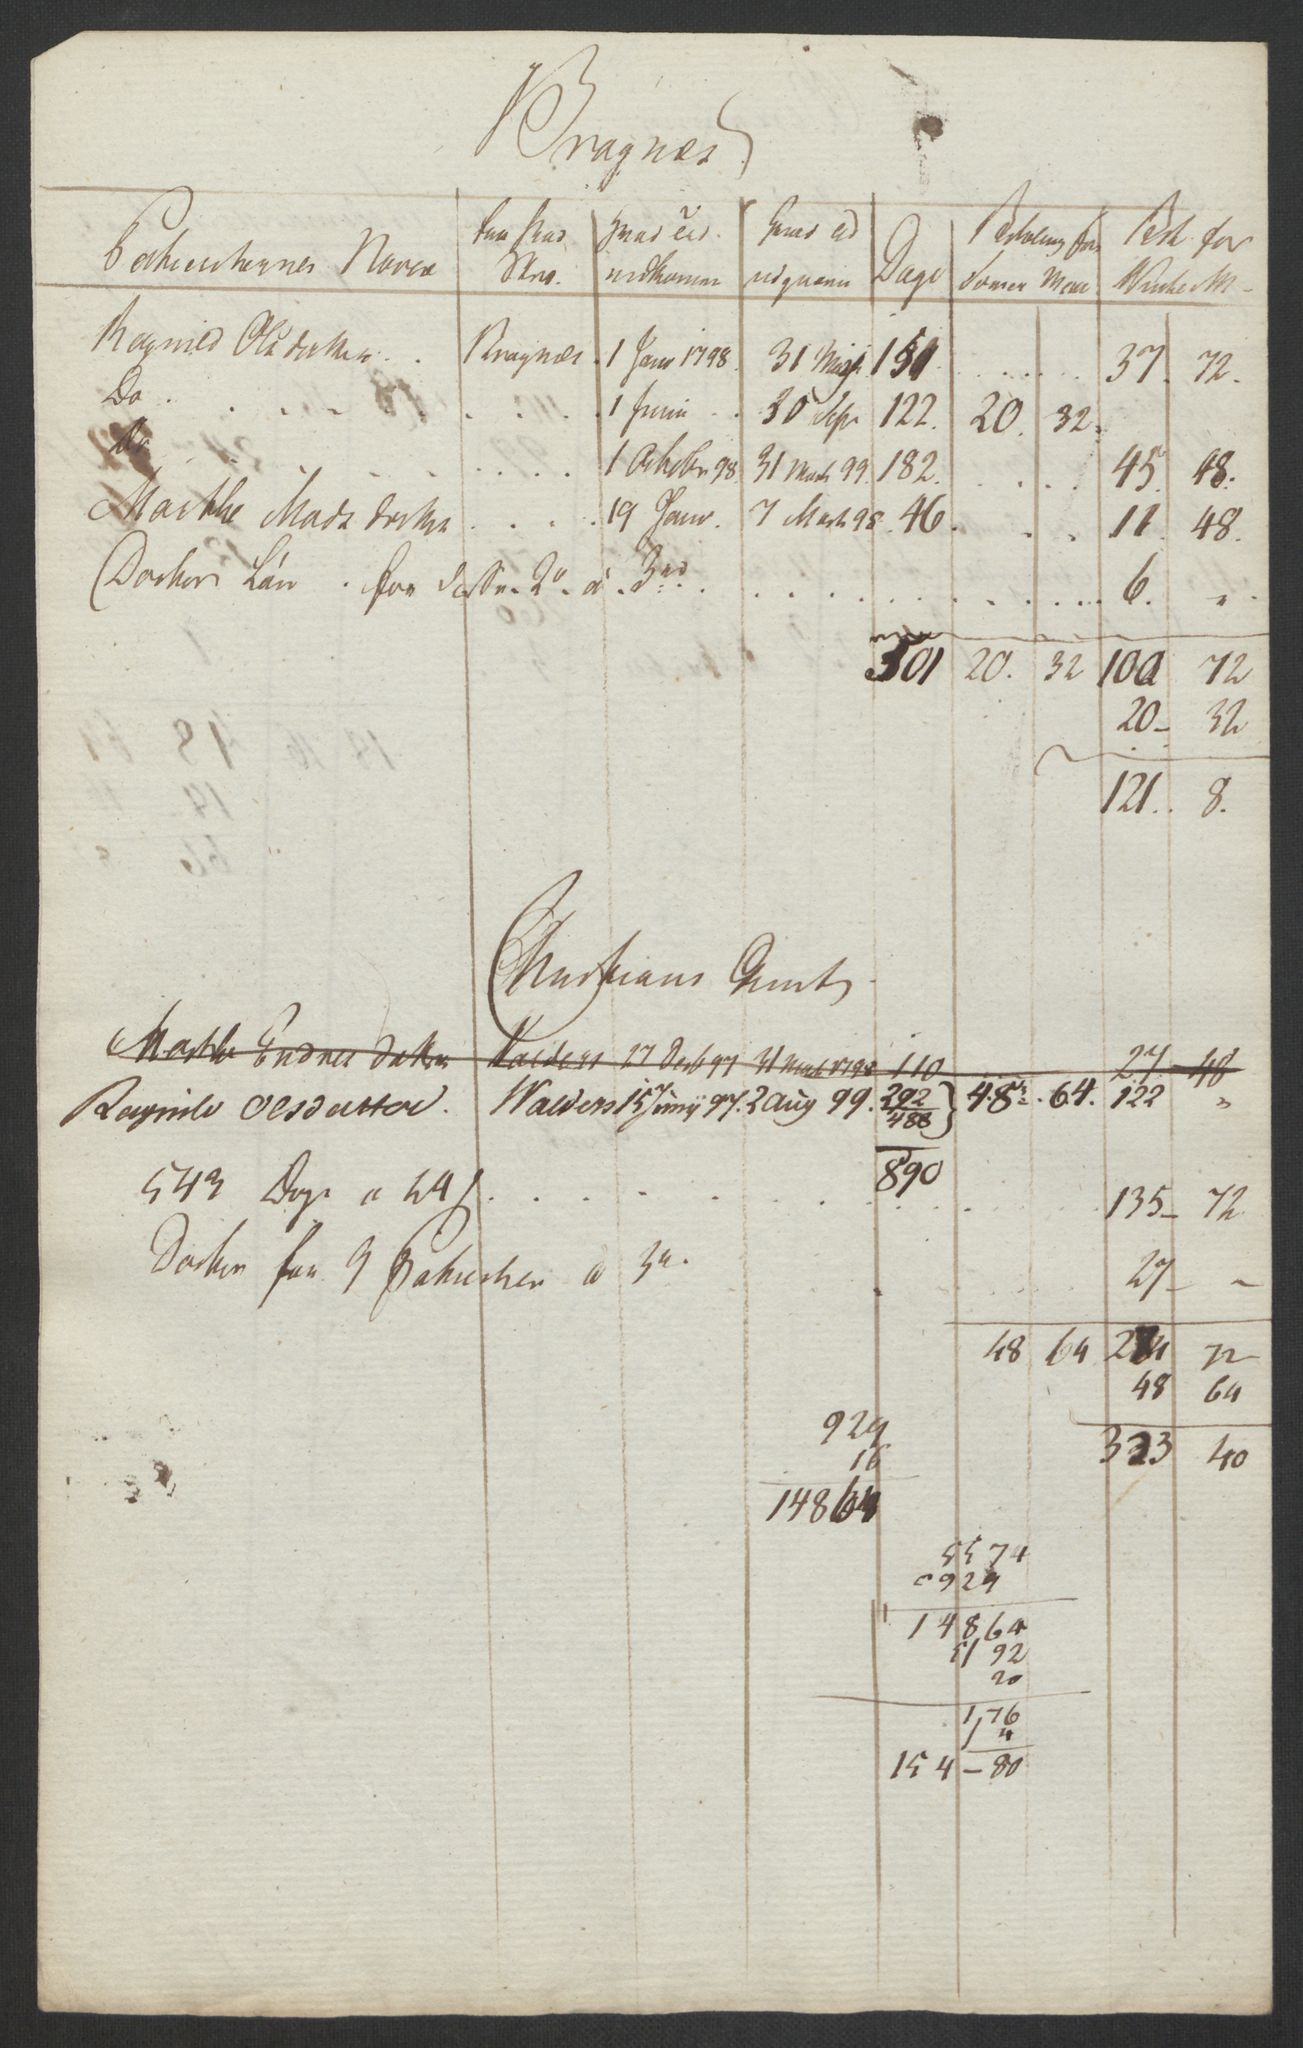 Bragnæs
Patienternes Navne
fra hvad Sted
hvad tid indkommen
hvad tid udgaaen
Dage
Betaling for Somer Maan
Bet. for Winter M.
Ragnild Olsdatter . . Bragnæs . 1 Janv 1798. 31 May 151 . . . . 37. 72.
Do . . . . . . 1 Junii . . 30 Sepr 122. 20. 32.
Do . . . . . . 1 Octobr 98. 31 Marts 99. 182. . . . 45. 48.
Marthe Mads datter . . . . 19 Janv. 7 Marts 98. 46. . . 11. 48.
Doctors Løn . for disse 2de a 3rd. . . . . . 6. "
501 20. 32 100 72
20 - 32
121.. 8.
Christians Amt
Marthe Endres datter Walders 27 Decb 97 31 Marts 1798 110 27 - 48
Ragnild Olsdatter. Walders 15 Junij 97. 2 Aug 99. 292 48rd. 64. 122 "
488
890
543 Dage a 24 s . . . . . . 135 - 72
Doctor for 9 Patienter a 3rd. 27 - -
48 64 284 72
48 64
333 40
929
16
14864
5574
929
14864
5192
20
176
4
154 - 80